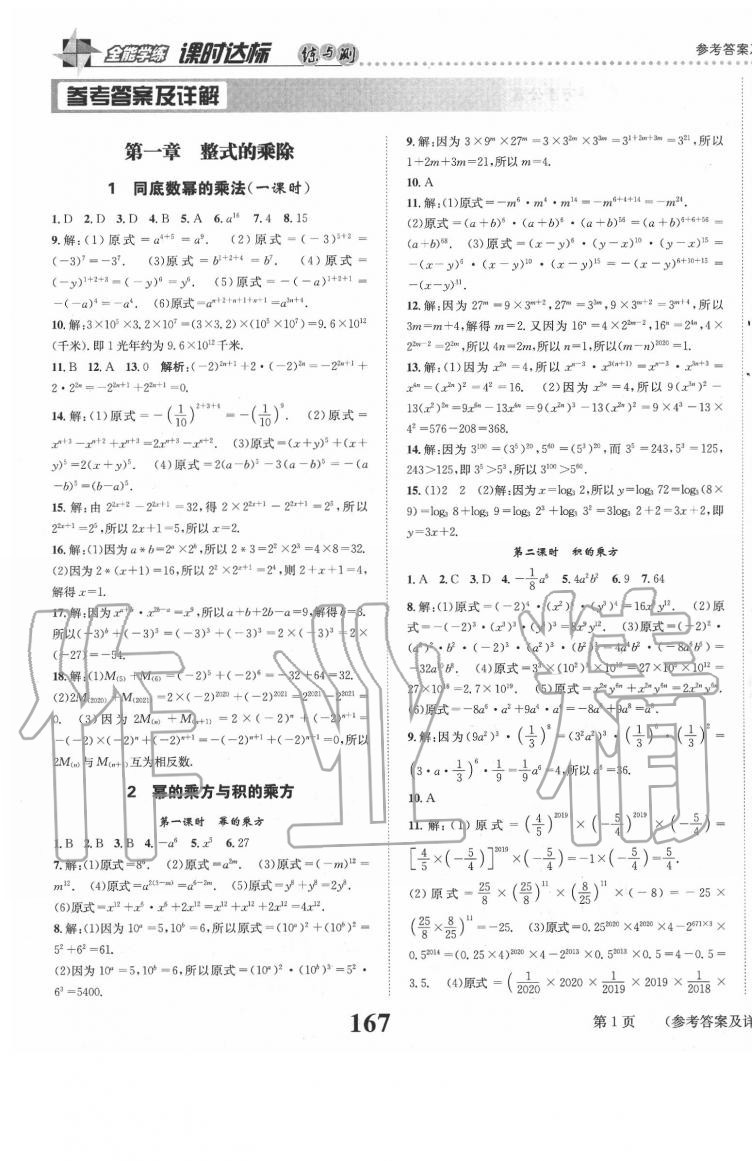 全能学练 课时达标 练与测
参考答案及
参考答案及详解
第一章 整式的乘除
1 同底数幂的乘法(一课时)
1. D 2. D 3. D 4. B 5. A 6. a^16 7. 4 8. 15
9. 解:(1)原式=a^(4+5)=a^9. (2)原式=(-3)^(5+2)=
(-3)^7=-3^7. (3)原式=b^(1+2+4)=b^7. (4)原式=
(-y)^(1+2+3)=(-y)^6=y^6. (5)原式=-(-a)^(1+2+1)=
-(-a)^4=-a^4. (6)原式=a^(n+2+n+1+n+1)=a^(3n+4).
10. 解:3×10^5×3.2×10^7=(3×3.2)×(10^5×10^7)=9.6×10^12
(千米). 即1光年约为9.6×10^12千米.
11. B 12. A 13. 0 解析:(-2)^(2n+1)+2·(-2)^2n=-2^(2n+1)+
2·2^2n=-2^(2n+1)+2^(2n+1)=0.
14. 解:(1)原式=-(1/10)^(2+3+4)=-(1/10)^9. (2)原式=
x^(n+3)-x^(n+2)+x^(n+3)=2x^(n+3)-x^(n+2). (3)原式=(x+y)^5+(x+
y)^5=2(x+y)^5. (4)原式=2(a-b)^5-3(a-b)^5=-(a
-b)^5=(b-a)^5.
15. 解:由2^(2x+2)-2^(2x+1)=32,得2×2^(2x+1)-2^(2x+1)=2^5,所以
2^(2x+1)=2^5,所以2x+1=5,所以x=2.
16. 解:(1)因为a*b=2^a×2^b,所以2*3=2^2×2^3=4×8=32.
(2)因为2*(x+1)=16,所以2^2×2^(x+1)=2^4,则2+x+1=4,
解得x=1.
17. 解:因为x^(a+b)·x^(2b-a)=x^9,所以a+b+2b-a=9,解得b=3.
所以(-3)^b+(-3)^3=(-3)^3+(-3)^3=2×(-3)^3=2×
(-27)=-54.
18. 解:(1)M(5)+M(6)=(-2)^5+(-2)^6=-32+64=32.
(2)2M(2020)+M(2021)=2×(-2)^2020+(-2)^2021=2^2021-2^2021=
0. (3)因为2M(n)+M(n+1)=2×(-2)^n+(-2)^(n+1)=
-(-2)×(-2)^n+(-2)^(n+1)=-(-2)^(n+1)+(-2)^(n+1)=0,所以
2M(n)与M(n+1)互为相反数.
2 幂的乘方与积的乘方
第一课时 幂的乘方
1. B 2. B 3. B 4. -a^6 5. x^5 6. 27
7. 解:(1)原式=8^6. (2)原式=a^2m. (3)原式=(-m)^12=
m^12. (4)原式=a^(2(3-m))=a^(6-2m). (5)原式=y^8+y^8=2y^8.
(6)原式=x^12+x^6·x^6+2x^12=x^12+x^12+2x^12=4x^12.
8. 解:(1)因为10^a=5,10^b=6,所以原式=(10^a)^2+(10^b)^2=
5^2+6^2=61.
(2)因为10^a=5,10^b=6,所以原式=(10^a)^2·(10^b)^3=5^2·
6^3=5400.
9. 解:因为3×9^m×27^m=3×3^2m×3^3m=3^(1+2m+3m)=3^21,所以
1+2m+3m=21,所以m=4.
10. A
11. 解:(1)原式=-m^6·m^4·m^14=-m^(6+4+14)=-m^24.
(2)原式=(a+b)^6·(a+b)^6·(a+b)^56=(a+b)^(6+6+56)=
(a+b)^68. (3)原式=(x-y)^6·(y-x)^10·(y-x)^15=
-(x-y)^6·(x-y)^10·(x-y)^15=-(x-y)^(6+10+15)=
-(x-y)^31.
12. 解:因为27^m=9×3^(m+2),27^m=3^3m,9×3^(m+2)=3^(m+4),所以
3m=m+4,解得m=2. 又因为16^n=4×2^(2n-2),16^n=2^4n,4×
2^(2n-2)=2^2n,所以4n=2m,所以n=1,所以(m-n)^2020=1.
13. 解:(1)因为x^n=4,所以x^(n-3)·x^(3(n+1))=x^(n-3)·x^(3n+3)=
x^4n=(x^2n)^2=4^2=16. (2)因为x^2n=4,所以9(x^3n)^2-
13(x^2)^2n=9x^6n-13x^4n=9(x^2n)^3-13(x^2n)^2=9×4^3-13×
4^2=576-208=368.
14. 解:因为3^100=(3^5)^20,5^60=(5^3)^20,而3^5=243,5^3=125,
243>125,即3^5>5^3,所以3^100>5^60.
15. (1)2 2 (2)解:因为x=log₃2,所以y=log₃72=log₃(8×
9)=log₃8+log₃9=log₃2^3+log₃3^2=3log₃2+2=3x+2,即
y=3x+2.
第二课时 积的乘方
1. A 2. C 3. D 4. -1/8a^6 5. 4a^2b^2 6. 9 7. 64
8. 解:(1)原式=(-2)^4·(x^2)^4·(y^3)^4=16x^8y^12. (2)原
式=-(-2)^3·(x^3)^3·(y^4)^3=8x^9y^12. (3)原式=(-2)^2·
(a^2)^2·b^2·(-2)^3·(a^2)^3·(b^2)^3=4a^4b^2·(-8a^6b^6)=
-32a^10b^8. (4)原式=3^3×(10^2)^3×10^12=27×10^6×10^12=
27×10^18=2.7×10^19. (5)原式=x^2n y^6n+x^2n y^6n=2x^2n y^6n.
(6)原式=-8a^6·a^2+9a^4·a^4=-8a^8+9a^8=a^8.
9. 解:因为(9a^2)^3·(1/3)^8=(3^2a^2)^3·(1/3)^6·(1/3)^2=
(3·a·1/3)^6·1/9=1/9a^6=4,所以a^6=36.
10. A
11. 解:(1)原式=(4/5)^2019×(-5/4)^2019×(-5/4)=
[4/5×(-5/4)]^2019×(-5/4)=-1×(-5/4)=5/4.
(2)原式=25/8×(25/8)^11×(8/25)^11×(-8)=-25×
(25/8×8/25)^11=-25. (3)原式=0.25^2020×4^2020×4-2^(671×3)×
0.5^2014=(0.25×4)^2020×4-2^2013×0.5^2013×0.5=4-0.5=
3.5. (4)原式=(1/2020×2020×1/2019×2019×1/2018×
167
第1页 (参考答案及详
作业精